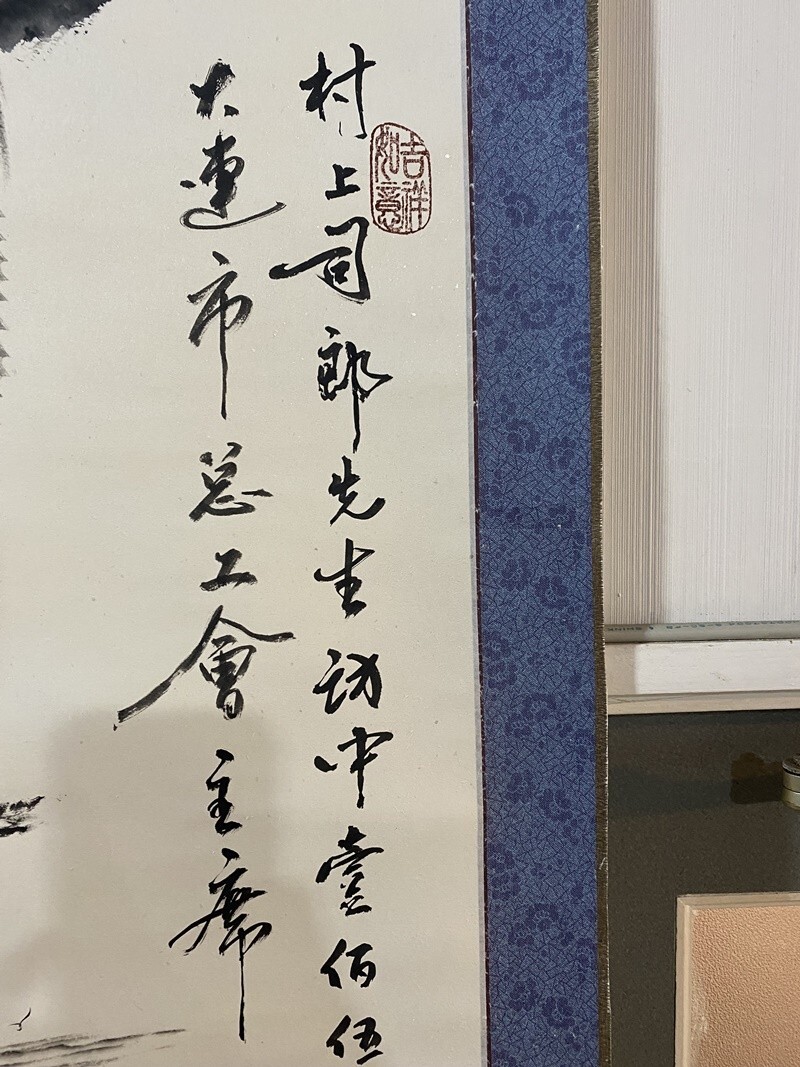 村上司郎先生訪中壹佰伍
大連市总工會主席
吉祥如意